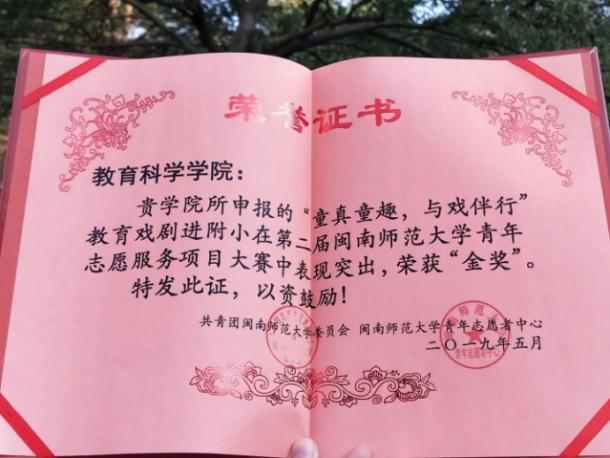 荣誉证书
教育科学学院：
贵学院所申报的“童真童趣，与戏伴行”
教育戏剧进附小在第二届闽南师范大学青年
志愿服务项目大赛中表现突出，荣获“金奖”。
特发此证，以资鼓励！
共青团闽南师范大学委员会 闽南师范大学青年志愿者中心
二〇一九年五月
青年志愿者中心